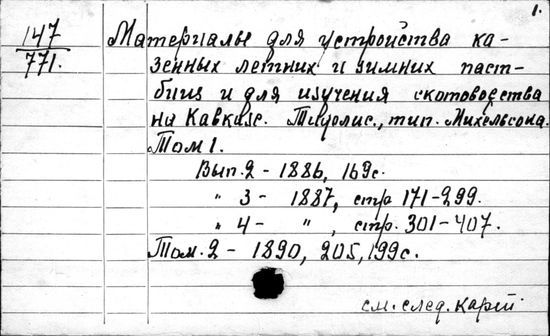 1.
147
771.
Материалы для устройства ка-
зенных летних и зимних паст-
бищ и для изучения скотоводства
на Кавказе. Тифлис., тип. Михельсона.
Том 1.
Вып. 2 - 1886, 169с.
" 3 - 1887, стр 171-299.
" 4 - " , стр. 301-407.
Том. 2 - 1890, 205, 199с.
см. след. карт